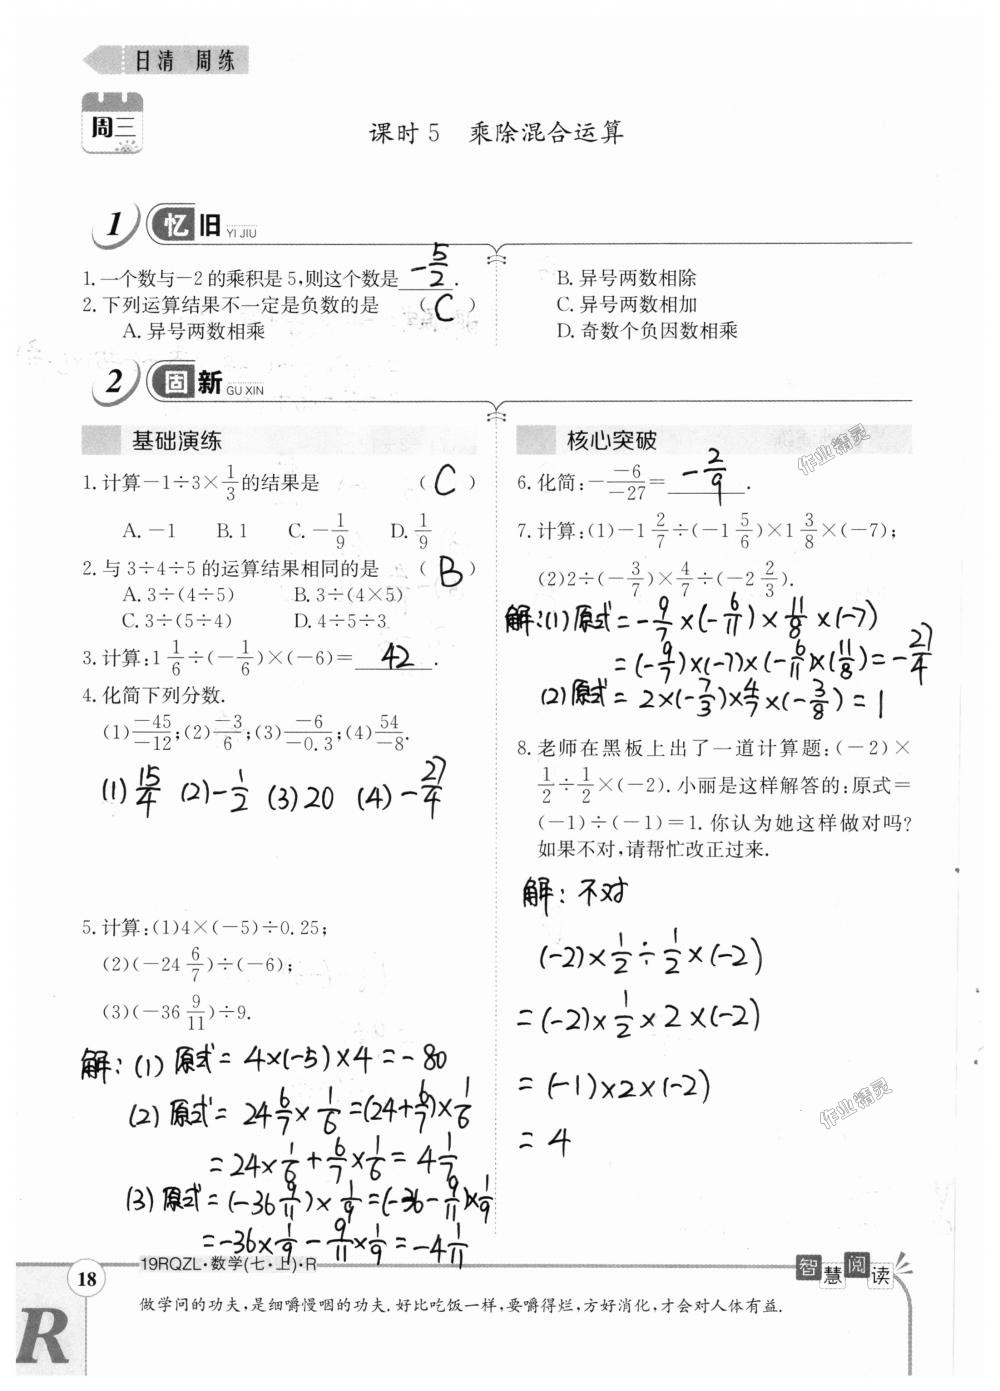 日清 周练
周三
课时5 乘除混合运算
1 忆旧 YI JIU
1.一个数与-2的乘积是5,则这个数是 -5/2 .
2.下列运算结果不一定是负数的是 ( C )
A.异号两数相乘
B.异号两数相除
C.异号两数相加
D.奇数个负因数相乘
2 固新 GU XIN
基础演练
1.计算-1÷3×1/3的结果是 ( C )
A.-1 B.1 C.-1/9 D.1/9
2.与3÷4÷5的运算结果相同的是 ( B )
A.3÷(4÷5) B.3÷(4×5)
C.3÷(5÷4) D.4÷5÷3
3.计算:1 1/6÷(-1/6)×(-6)= 42 .
4.化简下列分数.
(1)-45/-12;(2)-3/6;(3)-6/-0.3;(4)54/-8.
(1)15/4 (2)-1/2 (3)20 (4)-27/4
5.计算:(1)4×(-5)÷0.25;
(2)(-24 6/7)÷(-6);
(3)(-36 9/11)÷9.
解:(1)原式=4×(-5)×4=-80
(2)原式=24 6/7×1/6=(24+6/7)×1/6
=24×1/6+6/7×1/6=4 1/7
(3)原式=(-36 9/11)×1/9=(-36-9/11)×1/9
=-36×1/9-9/11×1/9=-4 1/11
核心突破
6.化简:--6/-27= -2/9 .
7.计算:(1)-1 2/7÷(-1 5/6)×1 3/8×(-7);
(2)2÷(-3/7)×4/7÷(-2 2/3).
解:(1)原式=-9/7×(-6/11)×11/8×(-7)
=(-9/7)×(-7)×(-6/11)×(11/8)=-27/4
(2)原式=2×(-7/3)×4/7×(-3/8)=1
8.老师在黑板上出了一道计算题:(-2)×
1/2÷1/2×(-2).小丽是这样解答的:原式=
(-1)÷(-1)=1.你认为她这样做对吗?
如果不对,请帮忙改正过来.
解:不对
(-2)×1/2÷1/2×(-2)
=(-2)×1/2×2×(-2)
=(-1)×2×(-2)
=4
作业精灵
作业精灵
18
19RQZL·数学(七·上)·R
智慧阅读
做学问的功夫,是细嚼慢咽的功夫.好比吃饭一样,要嚼得烂,方好消化,才会对人体有益.
R